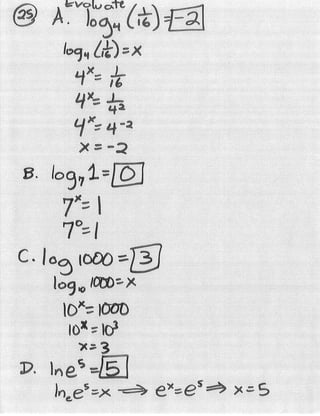 Evaluate
25 A. log₄ (1/16) = -2
log₄ (1/16) = x
4ˣ = 1/16
4ˣ = 1/4²
4ˣ = 4⁻²
x = -2
B. log₇ 1 = 0
7ˣ = 1
7⁰ = 1
C. log 1000 = 3
log₁₀ 1000 = x
10ˣ = 1000
10ˣ = 10³
x = 3
D. ln e⁵ = 5
lnₑ e⁵ = x ⟹ eˣ = e⁵ ⟹ x = 5